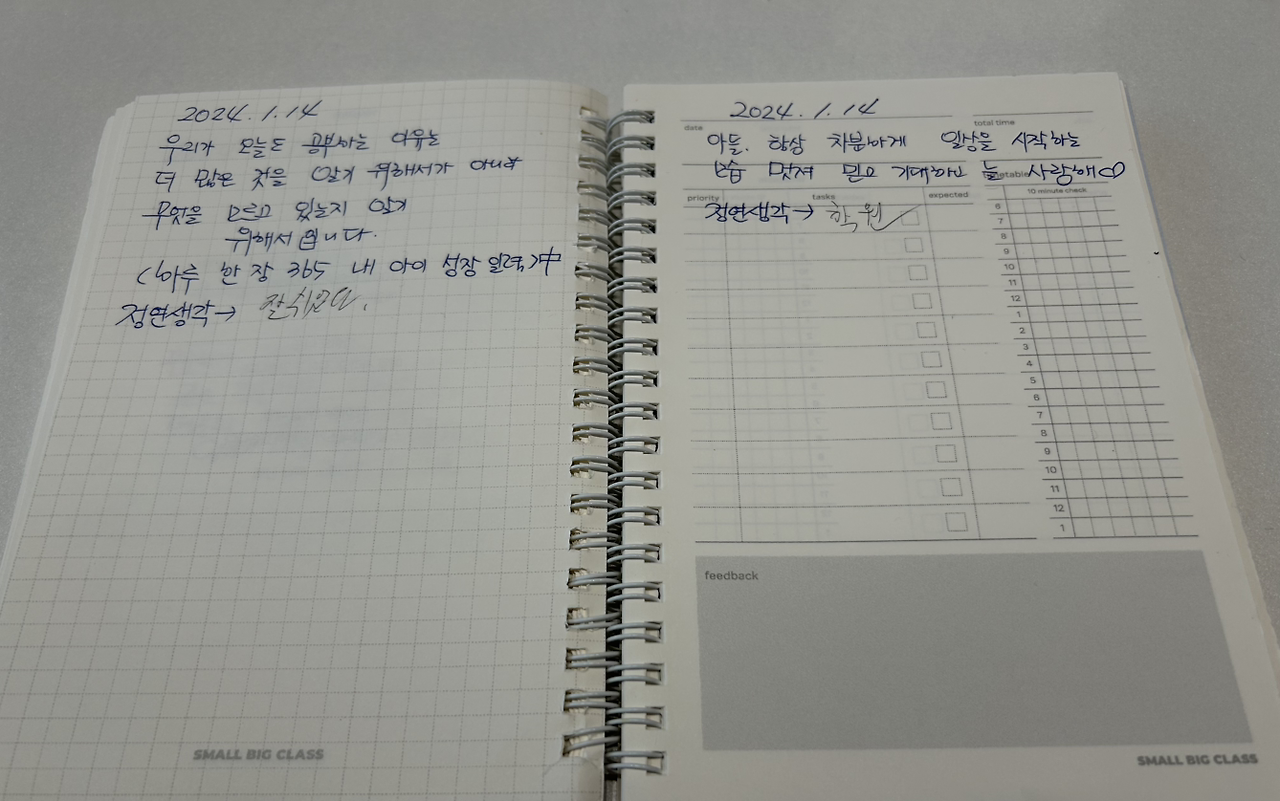 2024. 1. 14
우리가 오늘도 공부하는 이유는
더 많은 것을 알기 위해서가 아니라
무엇을 모르고 있는지 알기
위해서 입니다.
(하루 한 장 365 내 아이 성장 일력 中
정연생각→ 잘쉬었다.
SMALL BIG CLASS
2024. 1. 14
date
total time
아들. 항상 차분하게 일상을 시작하는
모습 멋져 믿고 기대하고 늘 사랑해♡
priority tasks expected
10 minute check
정연생각→ 학원
6
7
8
9
10
11
12
1
2
3
4
5
6
7
8
9
10
11
12
1
feedback
SMALL BIG CLASS